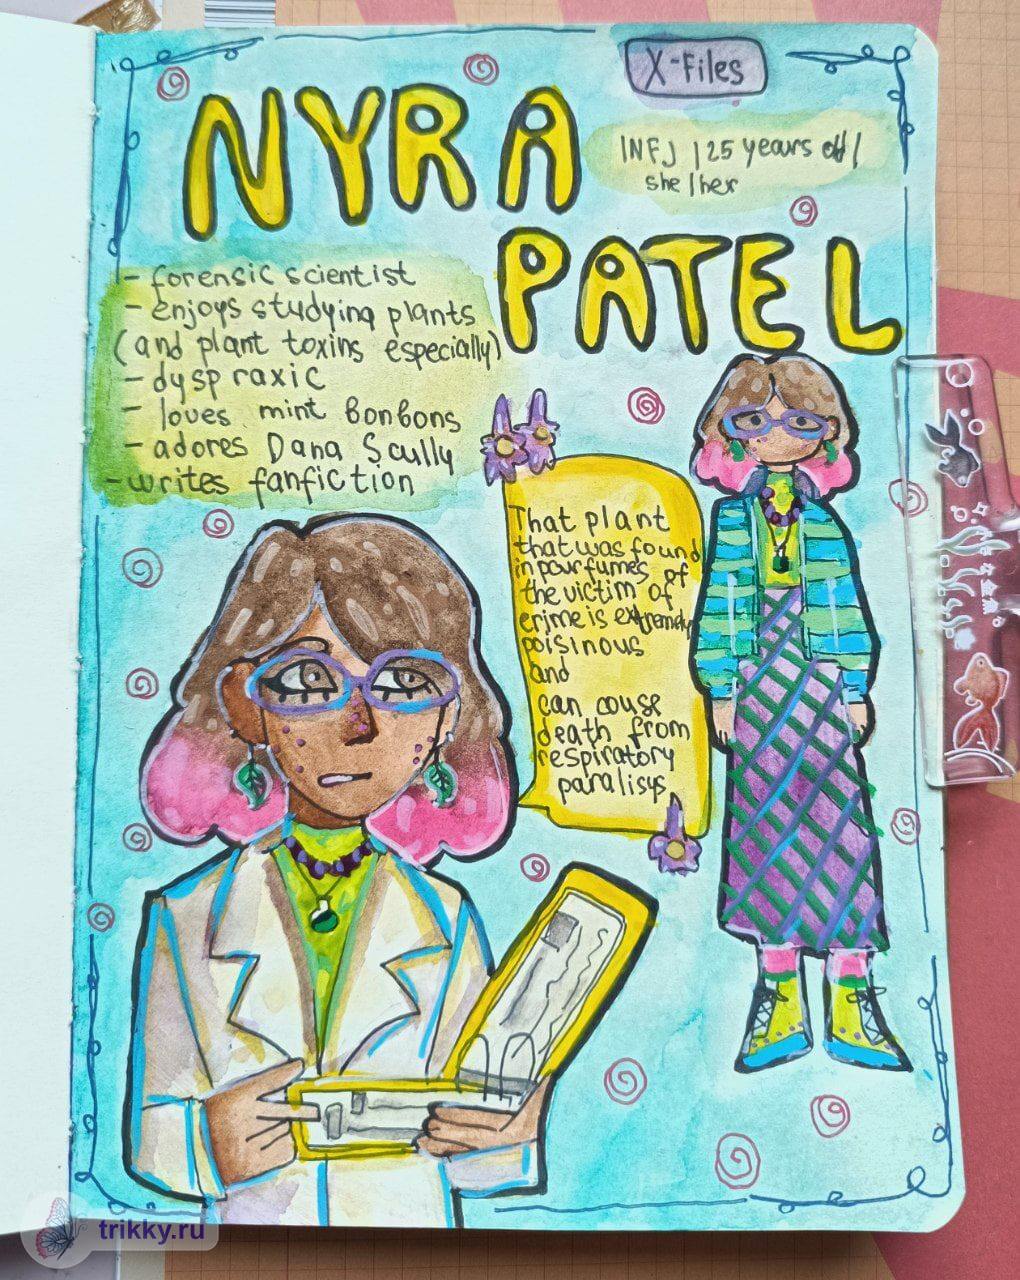 X-Files
NYRA
INFJ | 25 years old |
she/her
PATEL
- forensic scientist
- enjoys studying plants
(and plant toxins especially)
- dyspraxic
- loves mint Bonbons
- adores Dana Scully
- writes fanfiction
That plant
that was found
in pourfumes of
the victim of
crime is extremely
poisinous
and
can couse
death from
respiratory
paralisys
trikky.ru